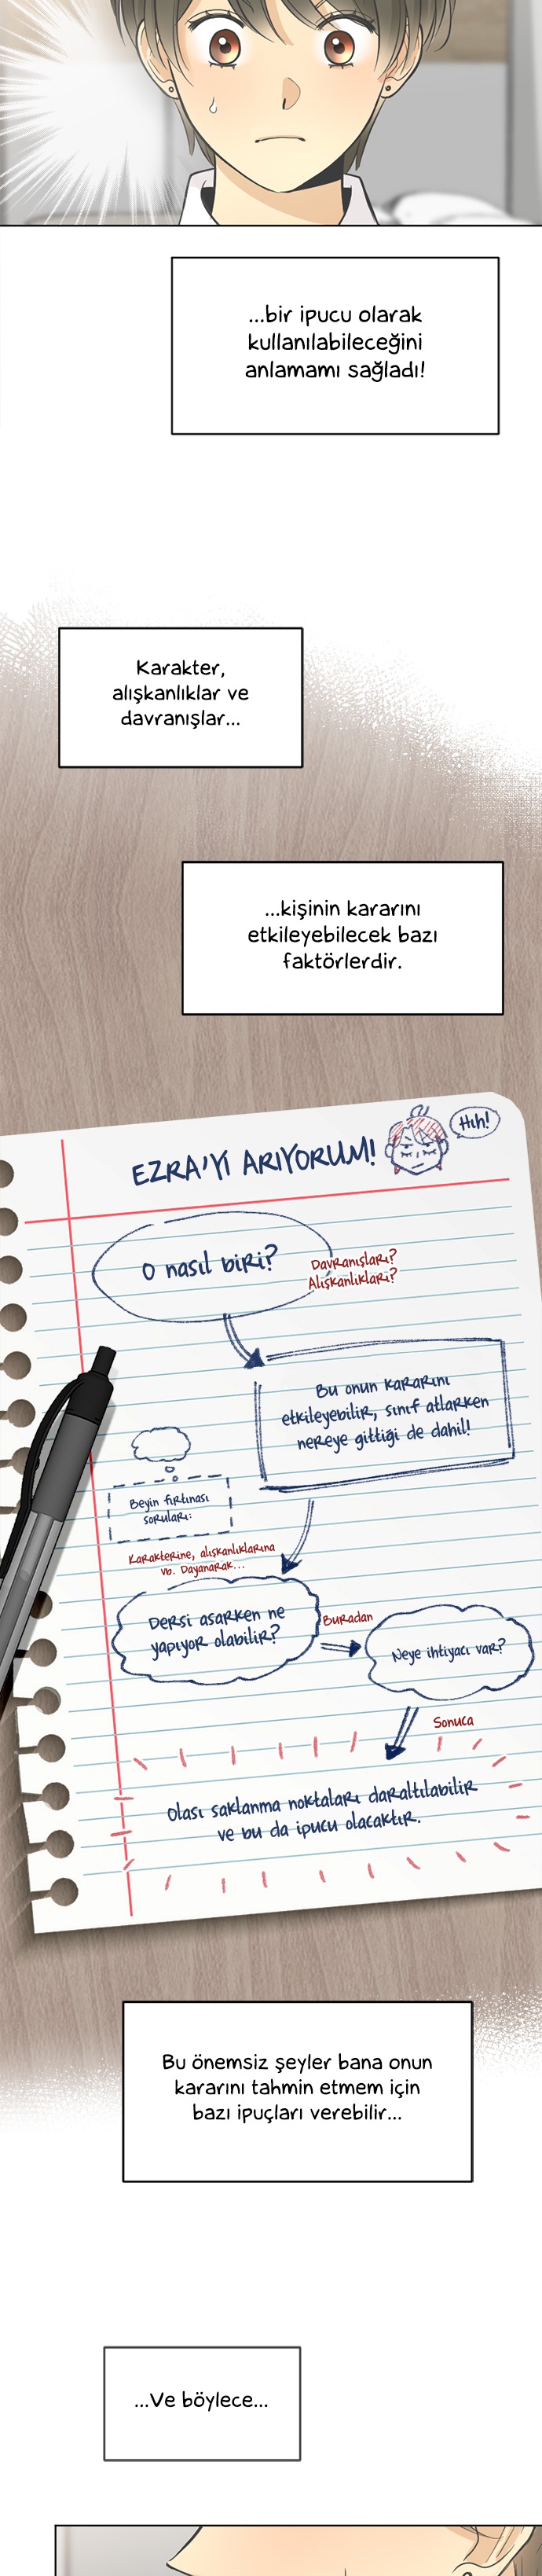 ...bir ipucu olarak
kullanılabileceğini
anlamamı sağladı!
Karakter,
alışkanlıklar ve
davranışlar...
...kişinin kararını
etkileyebilecek bazı
faktörlerdir.
Hıh!
EZRA'YI ARIYORUM!
O nasıl biri?
Davranışları?
Alışkanlıkları?
Bu onun kararını
etkileyebilir, sınıf atlarken
nereye gittiği de dahil!
Beyin fırtınası
soruları:
Karakterine, alışkanlıklarına
vb. Dayanarak...
Dersi asarken ne
yapıyor olabilir?
Buradan
Neye ihtiyacı var?
Sonuca
Olası saklanma noktaları daraltılabilir
ve bu da ipucu olacaktır.
Bu önemsiz şeyler bana onun
kararını tahmin etmem için
bazı ipuçları verebilir...
...Ve böylece...